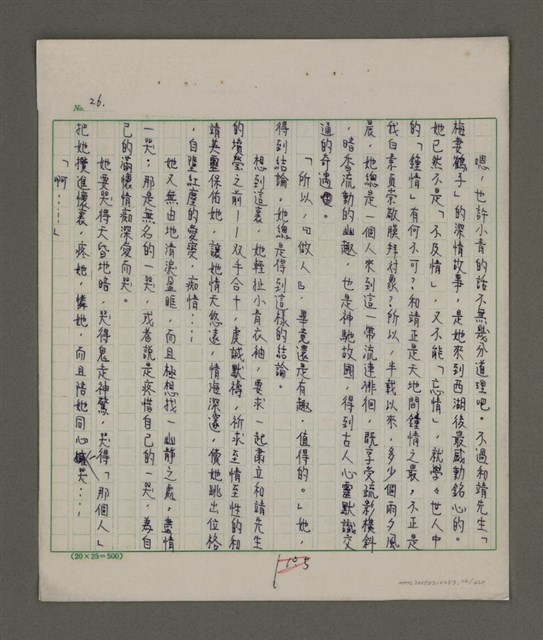 No. 26.
嗯，也許小青的話不無幾分道理吧。不過和靖先生「
梅妻鶴子」的深情故事，是她來到西湖後最感動銘心的。
她已然不是「不及情」，又不能「忘情」，就學學世人中
的「鍾情」有何不可？和靖正是天地間鍾情之最，不正是
我白素貞崇敬膜拜對象？所以，半載以來，多少個雨夕風
晨，她總是一個人來到這一帶流連徘徊，既享受疏影橫斜
，暗香流動的幽趣，也是神馳故園，得到古人心靈默識交
通的奇遇。
「所以，『做人』，畢竟還是有趣，值得的。」她，
得到結論，她總是得到這樣的結論。
想到這裏，她輕扯小青衣袖，要求一起肅立和靖先生
的墳塋之前——双手合十，虔誠默禱，祈求至情至性的和
靖英靈保佑她，讓她情天悠遠，情海深邃，償她跳出位格
，自墮紅塵的愛戀，痴情……
她又無由地清淚盈眶，而且極想找一幽靜之處，盡情
一哭；那是無名的一哭，或者說是疼惜自己的一哭，為自
己的滿懷情痴深愛而哭。
她要哭得天昏地暗，哭得鬼走神驚，哭得「那個人」
把她攬進懷裏，疼她，憐她，而且陪她同心哭……
「啊……」
(20×25=500)
105